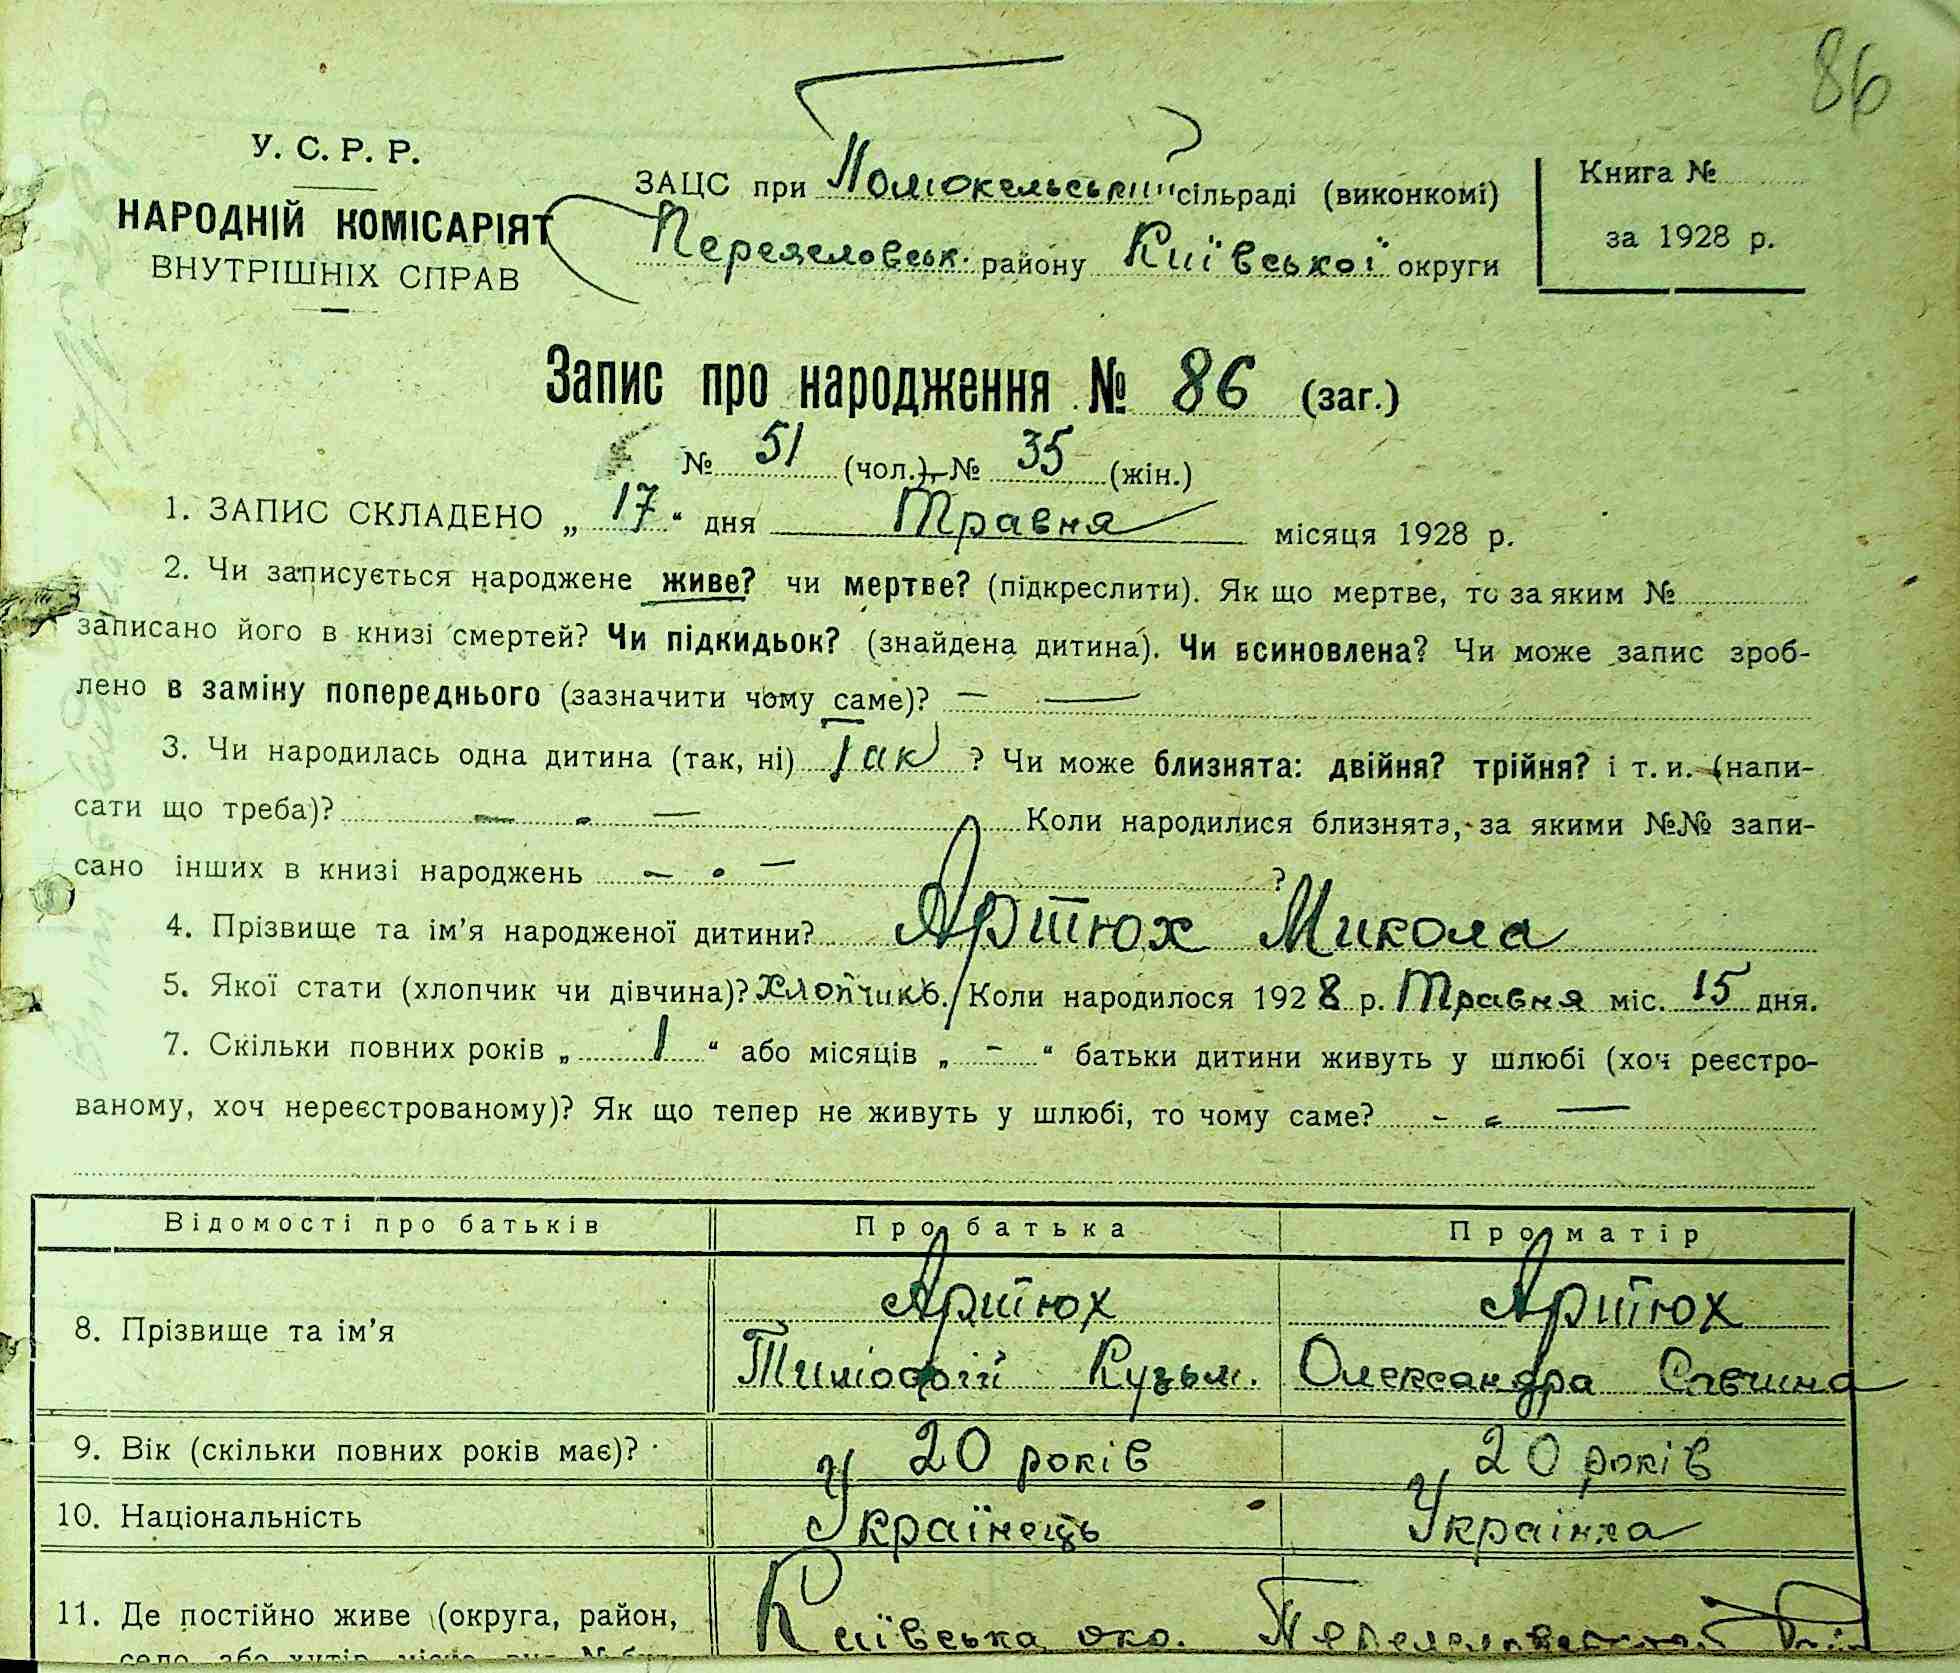 86
У. С. Р. Р.
НАРОДНІЙ КОМІСАРІЯТ
ВНУТРІШНІХ СПРАВ
ЗАЦС при сільраді (виконкомі)
району Київської округи
Книга №
за 1928 р.
Запис про народження № 86 (заг.)
№ 51 (чол.), № 35 (жін.)
1. ЗАПИС СКЛАДЕНО „ 17 “ дня Травня місяця 1928 р.
2. Чи записується народжене живе? чи мертве? (підкреслити). Як що мертве, то за яким №
записано його в книзі смертей? Чи підкидьок? (знайдена дитина). Чи всиновлена? Чи може запис зроб-
лено в заміну попереднього (зазначити чому саме)? — —
3. Чи народилась одна дитина (так, ні) Так ? Чи може близнята: двійня? трійня? і т. и. (напи-
сати що треба)? — . — Коли народилися близнята, за якими №№ запи-
сано інших в книзі народжень — . — ?
4. Прізвище та ім’я народженої дитини? Артюх Микола
5. Якої стати (хлопчик чи дівчина)? хлопчикъ. Коли народилося 1928 р. Травня міс. 15 дня.
7. Скільки повних років „ 1 “ або місяців „ - “ батьки дитини живуть у шлюбі (хоч реєстро-
ваному, хоч нереєстрованому)? Як що тепер не живуть у шлюбі, то чому саме? - - —
Відомості про батьків Про батька Про матір
8. Прізвище та ім’я Артюх Артюх
Тимофій Кузьм. Олександра Савчина
9. Вік (скільки повних років має)? 20 років 20 років
10. Національність Українець Українка
11. Де постійно живе (округа, район, Київська окр.